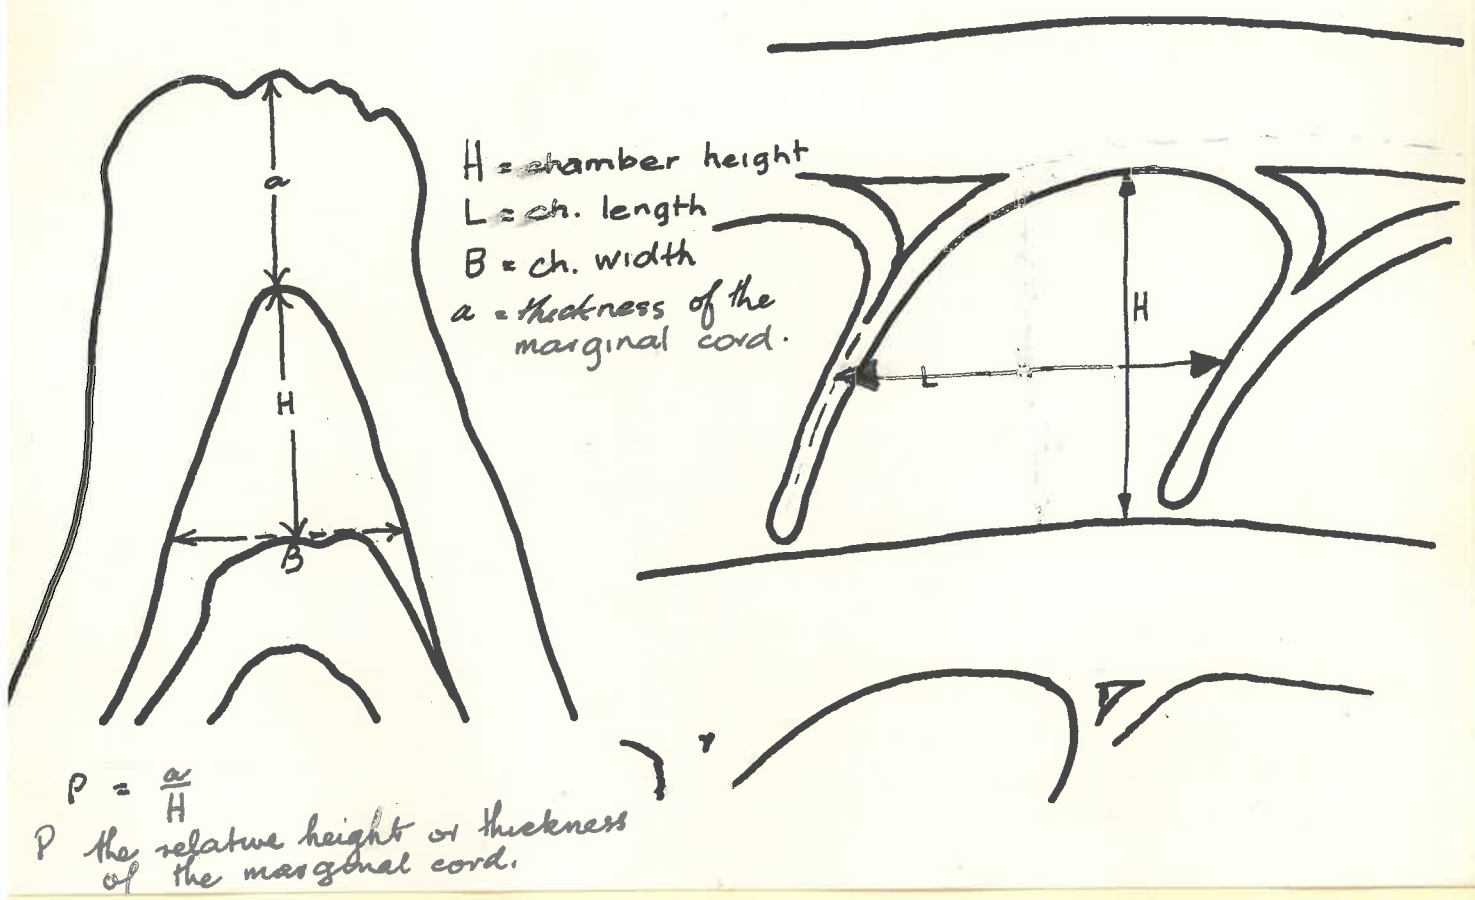 a
H
B
H = chamber height
L = ch. length
B = ch. width
a = thickness of the
marginal cord.
H
L
P = a
H
P the relative height or thickness
of the marginal cord.